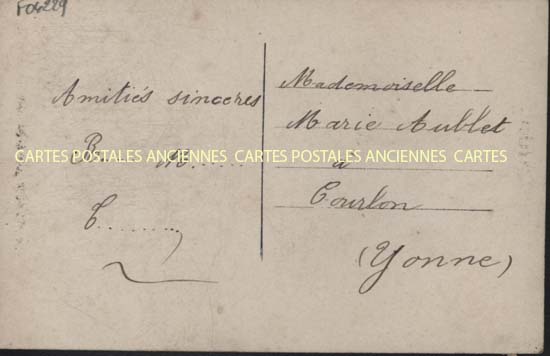 F04229
Amitiés sincères
B..... M......
C.........
Mademoiselle
Marie Aublet
à
Courlon
(Yonne)
CARTES POSTALES ANCIENNES CARTES POSTALES ANCIENNES CARTES